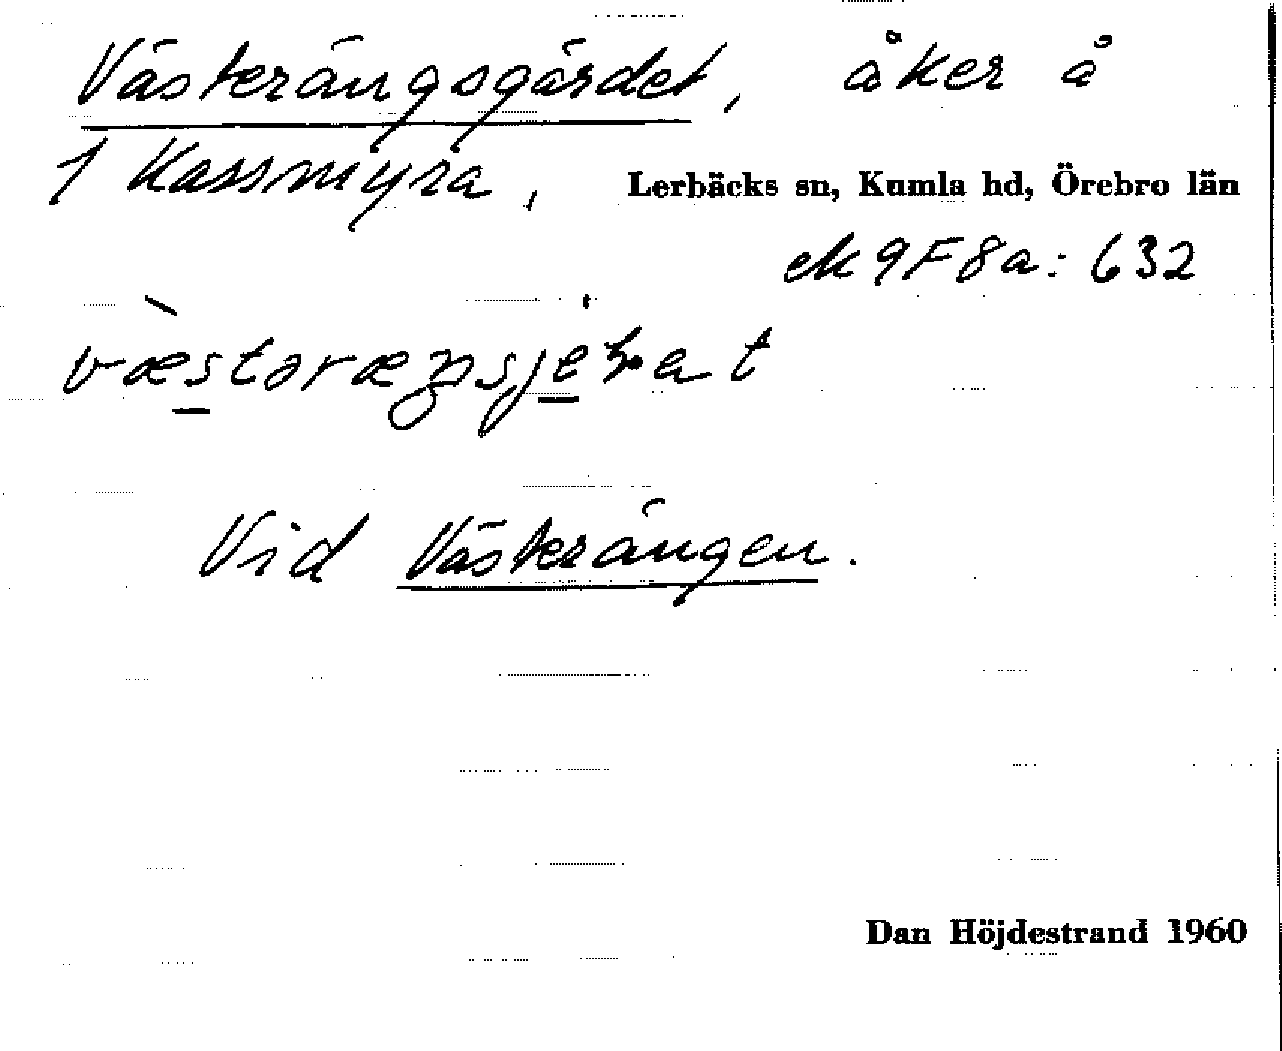 Västerängsgärdet, åker å
1 Kassmyra, Lerbäcks sn, Kumla hd, Örebro län
ek 9F8a: 632
Vid Västerängen.
Dan Höjdestrand 1960